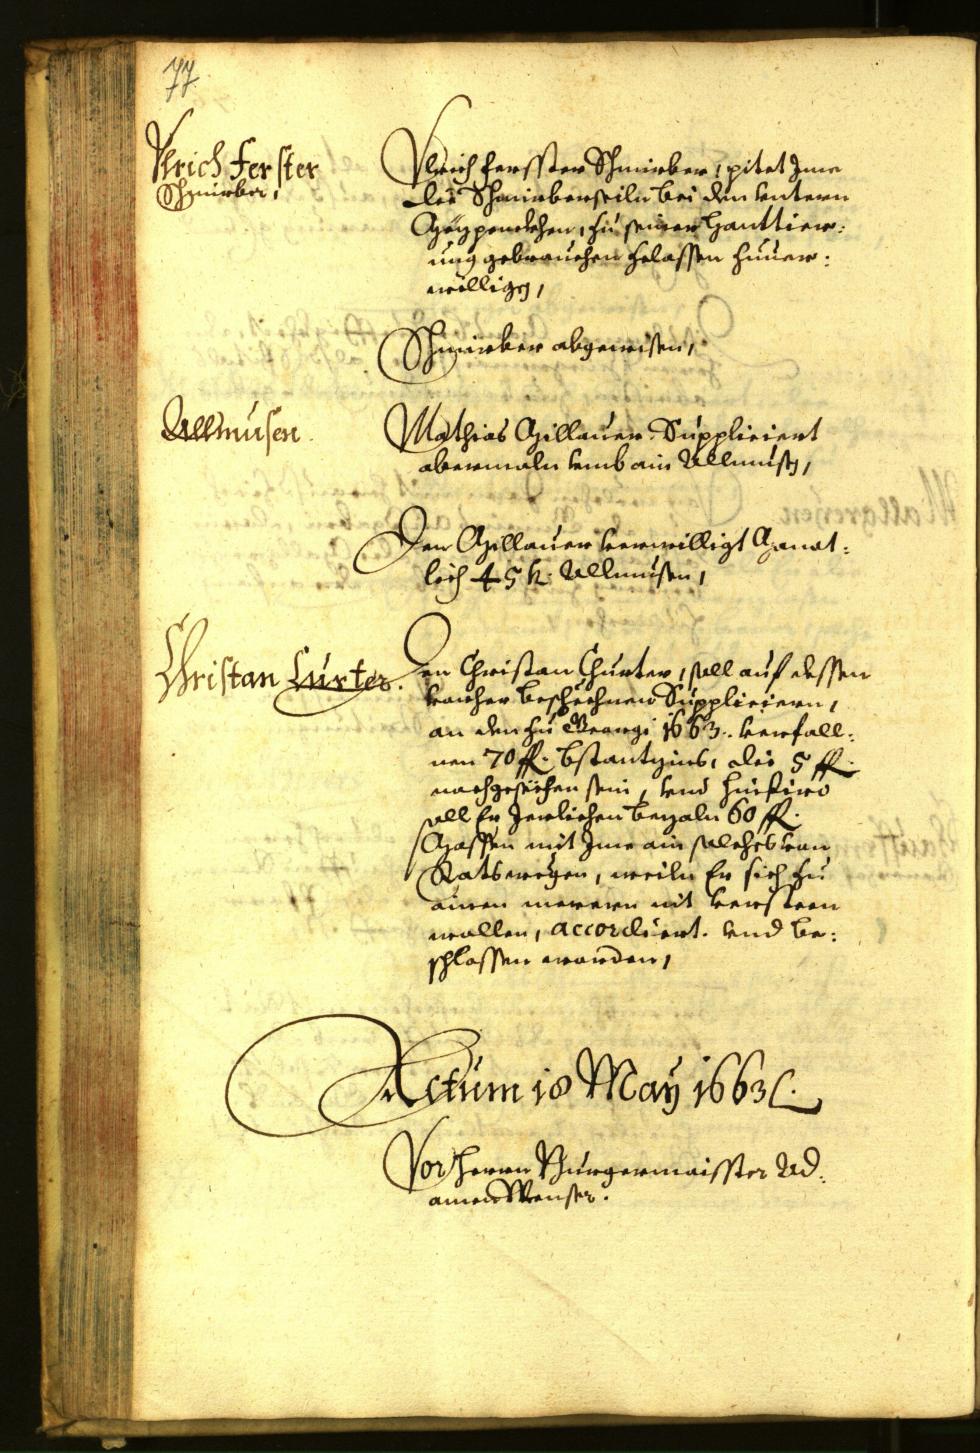 77
Vlrich Ferster
Schmirber,
Vlrich Fersster Schmirber, pitet Jme
die Schmirberseiln bei den vntern
zu seiner Hanttier-
ung gebrauchen zelassen zuuer-
willigen,
Schmirber abgewisen,
Allmusen.
Mathias Gillauer Suppliciert
abermaln vmb ain Allmusen,
Dem Gillauer verwilligt Monat-
lich 45 k. Allmusen,
Christan Curter.
Dem Christan Churter, soll auf dessen
vorher beschechnen Suppliciern,
an den zu Georgi 1663. verfall-
nen 70 fl. bstantzins, die 5 fl.
nachgesechen sein, vnd hinfiro
soll Er Jerlichen bezaln 60 fl.
Massen mit Jme ain solches von
Rats wegen, weiln Er sich zu
ainen merern nit versteen
wollen, accordiert. vnd be-
schlossen worden,
Actum 18 May 1663.
Vor Herrn Burgermaisster Ad-
amen Wenser.